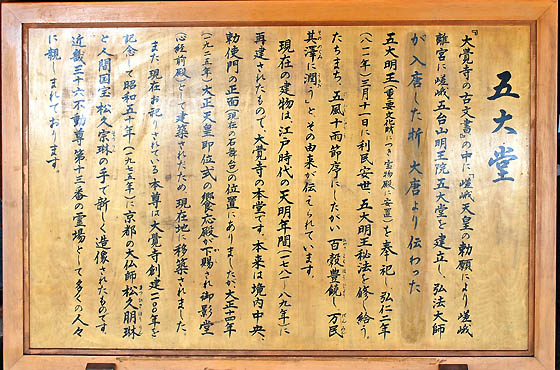 五大堂
『大覚寺の古文書』の中に嵯峨天皇の勅願により嵯峨
離宮に嵯峨五台山明王院五大堂を建立し、弘法大師
が入唐した折大唐より伝わった
五大明王(重要文化財につき宝物殿に安置)を奉祀し弘仁二年
(八一一年)三月十一日に利民安世、五大明王秘法を修し給う。
たちまち、五風十雨節序にしたがい百穀豊饒し万民
其澤に潤う」と、その由来が伝えられています。
現在の建物は、江戸時代の天明年間(一七八一〜八九年)に
再建されたもので、大覚寺の本堂です。本来は境内中央、
勅使門の正面(現在の石舞台)位置にありましたが大正十四年
(一九二五年)大正天皇即位式の饗応殿が下賜され御影堂
心経前殿として建築されたため、現在地に移築されました。
また、現在お祀りされている本尊は大覚寺創建一一〇〇年を
記念して昭和五十年(一九七五年)に京都の大仏師松久朋琳
と人間国宝松久宗琳の手で新しく造像されたものです。
近畿三十六不動尊第十三番の霊場として多くの人々
に親しまれております。